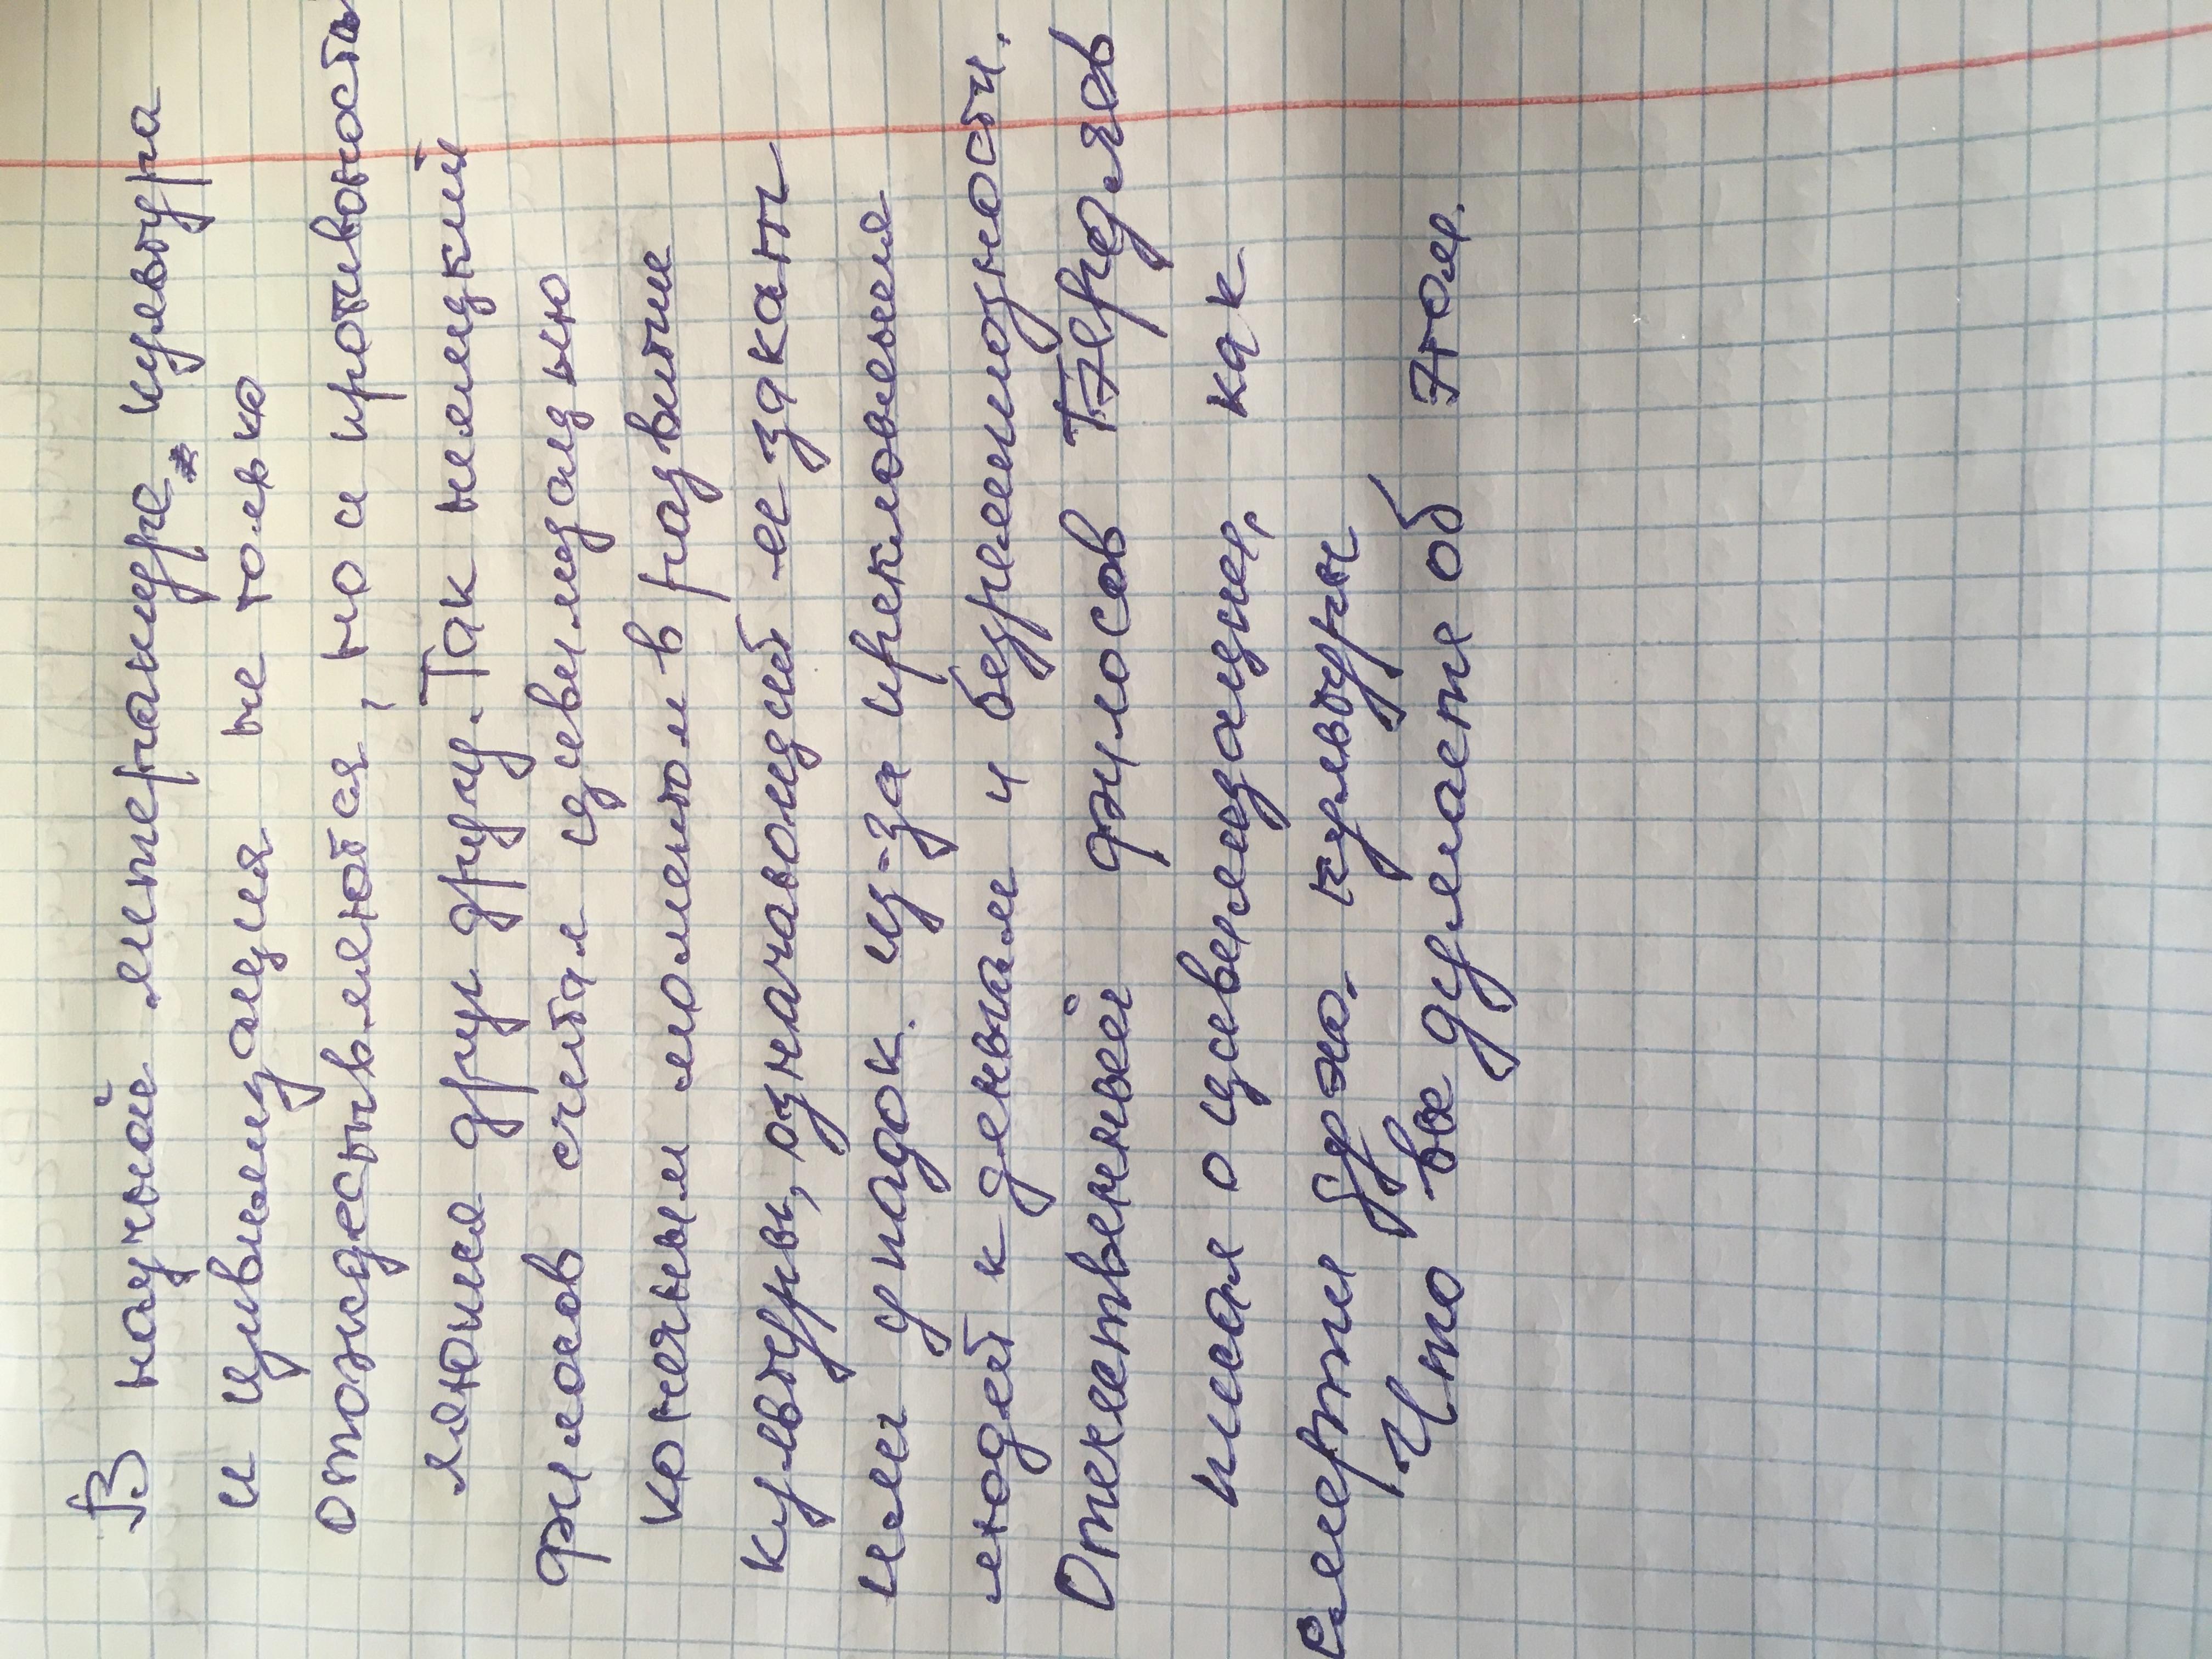 В научной литературе культура
и цивилизация не только
отождествляются, но и противопостав
ления друг другу. Так немецкий
филосов считал цивилизацию
конечным моментом в развитие
культуры, означающией ее закат
или упадок. из-за преклонения
людей к деньгам и безрелигиозности.
Отечественный филосов Бердяев
писал о цивилизации, как
смерти духа культуры
Что вы думаете об этом.